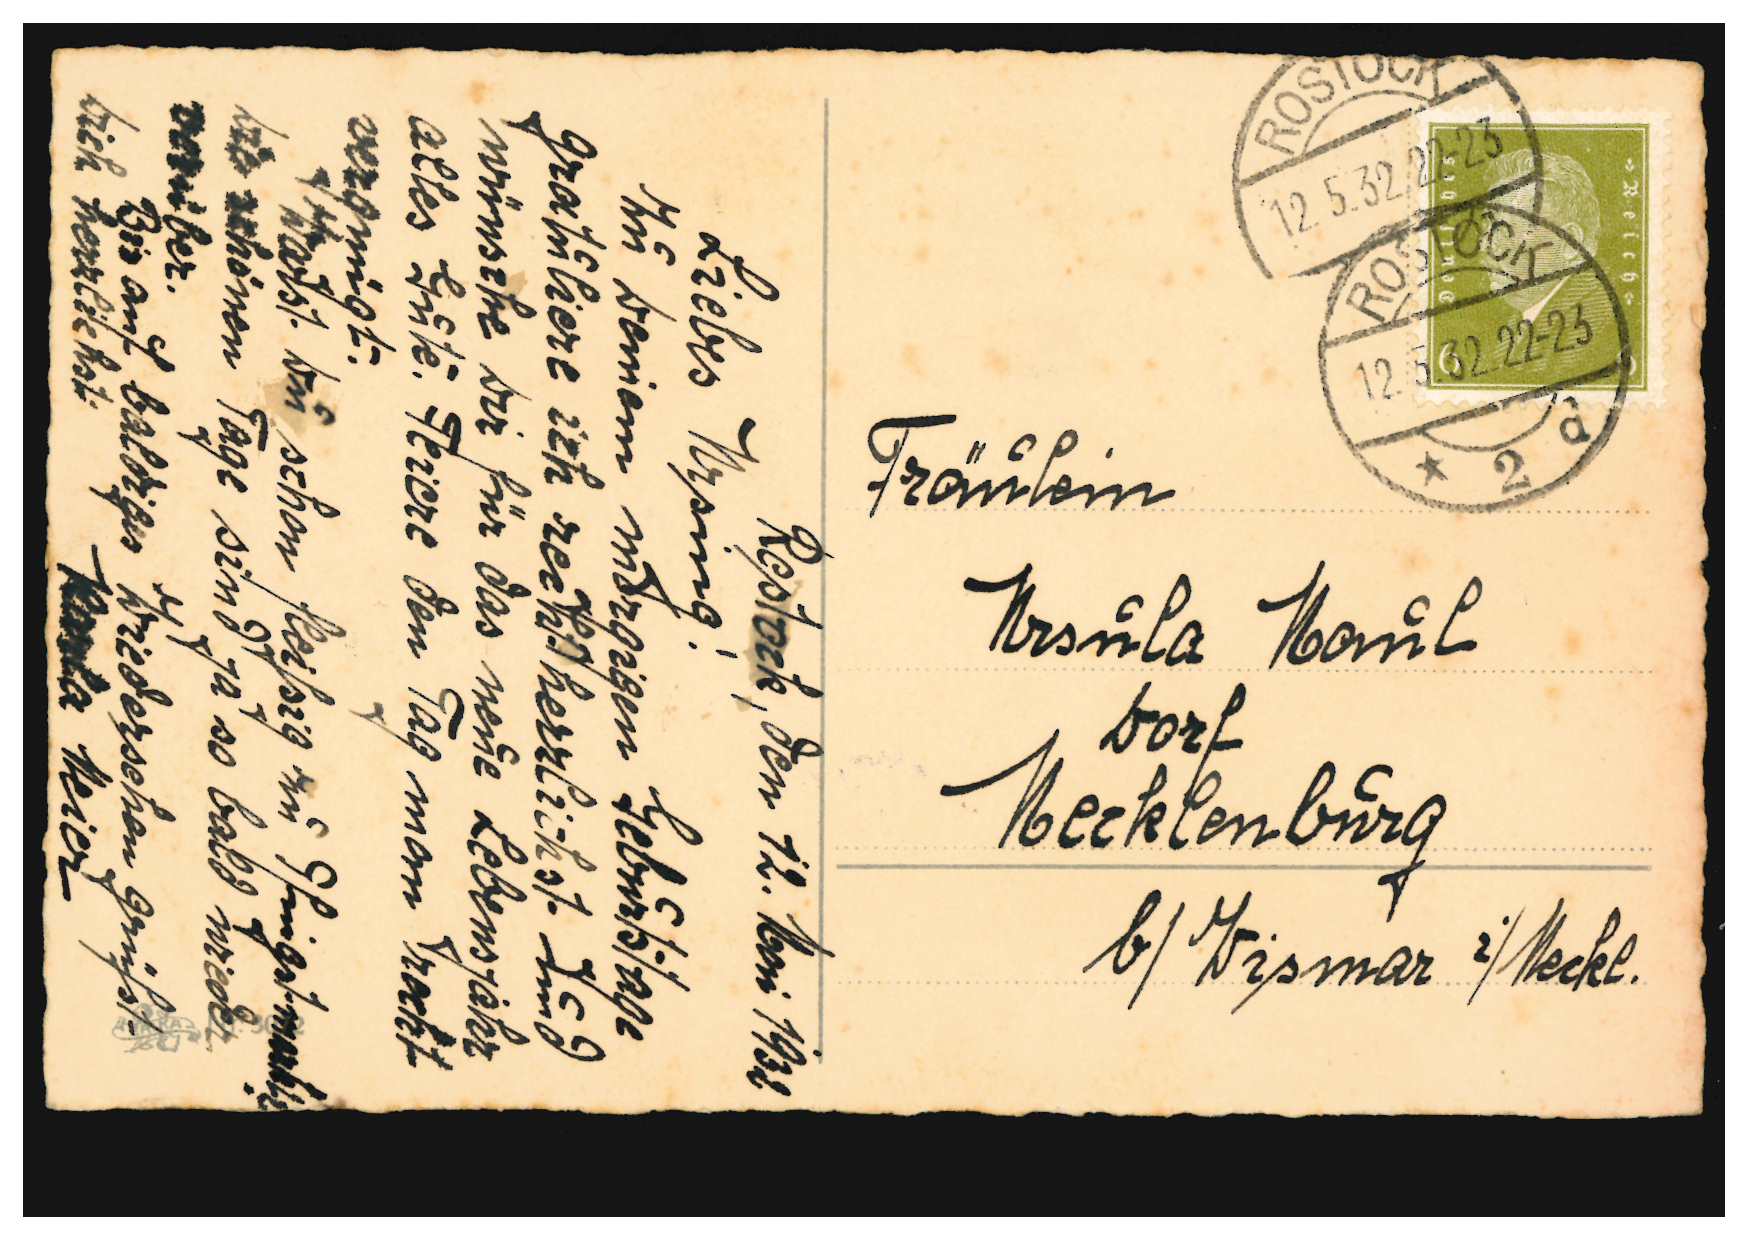 Rostock, den 12. Mai 1932
Liebes Ursing!
Zu deinem morgigen Geburtstage
gratuliere ich recht herzlichst und
wünsche dir für das neue Lebensjahr
alles Gute. Feiere den Tag man recht
vergnügt.
Hast du schon fleißig zu Pfingsten
die schönen Tage sind ja so bald wieder
vorüber.
Bis auf baldiges Wiedersehen grüßt
dich herzlichst.
Meier
Fräulein
Ursula Maul
Dorf
Mecklenburg
b/ Wismar i/Meckl.
ROSTOCK
12.5.32.22-23
ROSTOCK
12.5.32.22-23
* 2 d
Deutsches Reich
6 6